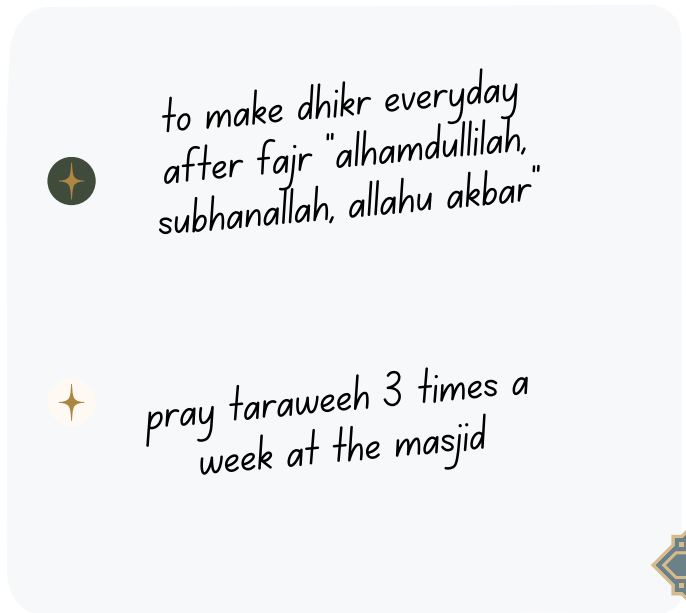 to make dhikr everyday
after fajr "alhamdullilah,
subhanallah, allahu akbar"
pray taraweeh 3 times a
week at the masjid